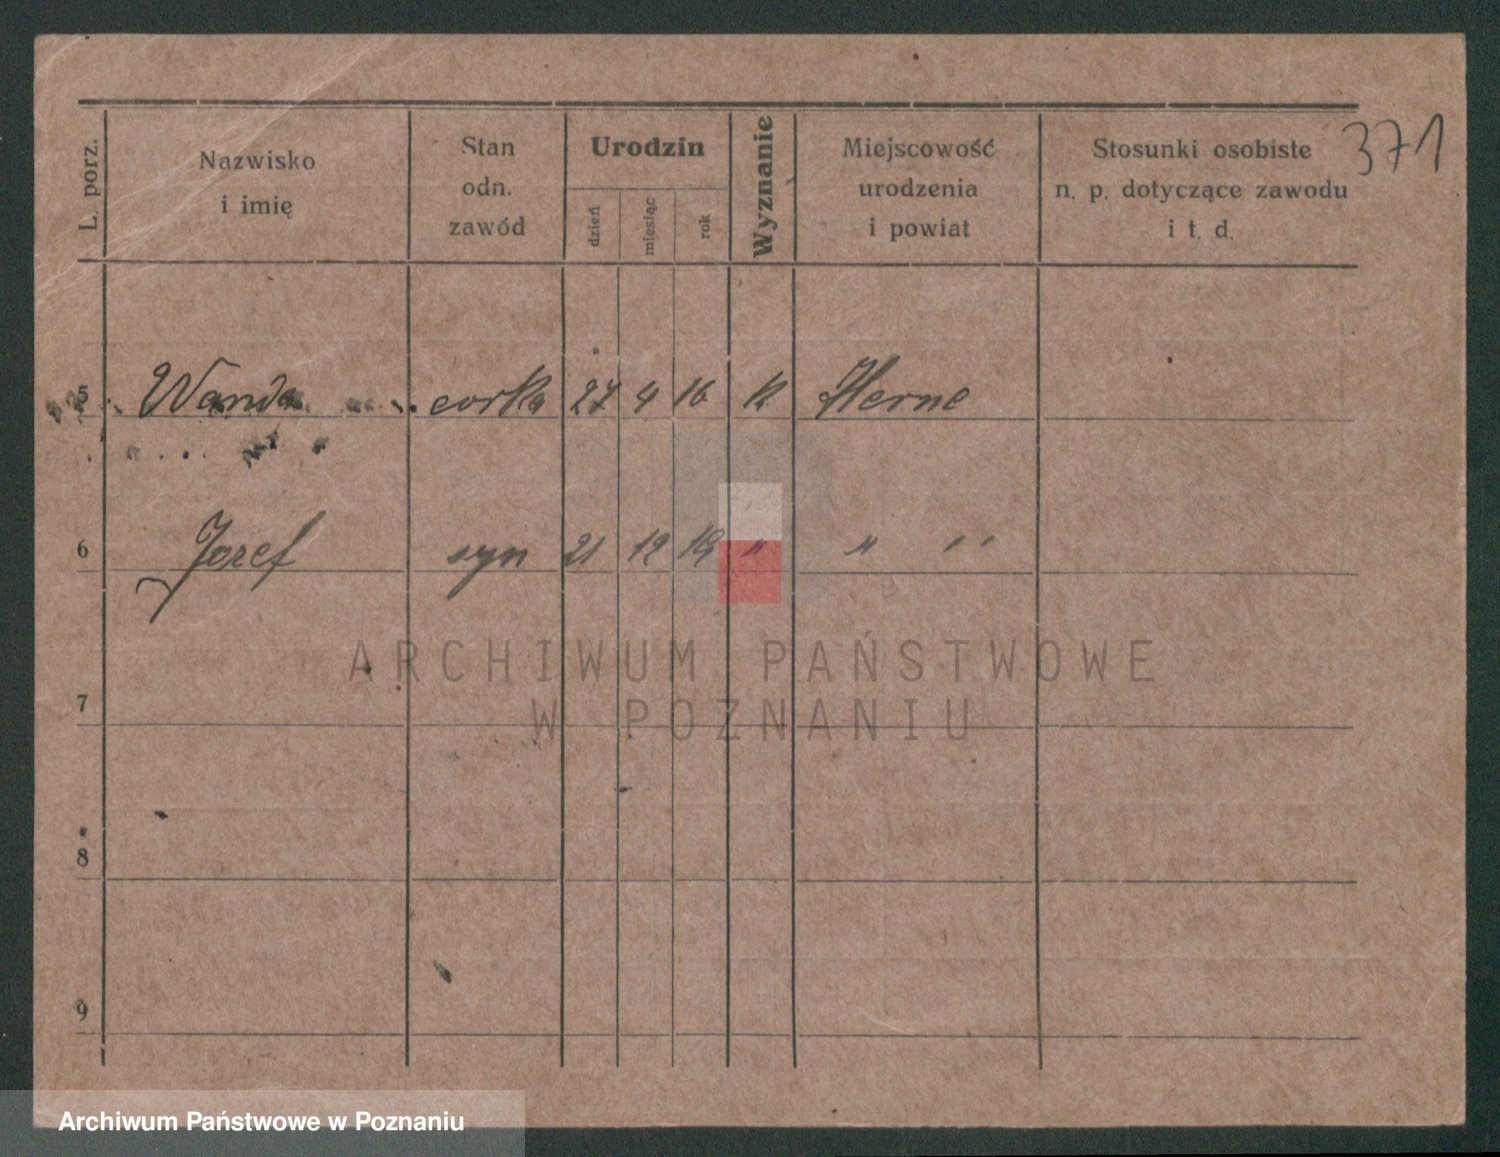 371
L. porz.
Nazwisko
i imię
Stan
odn.
zawód
Urodzin
dzień
miesiąc
rok
Wyznanie
Miejscowość
urodzenia
i powiat
Stosunki osobiste
n. p. dotyczące zawodu
i t. d.
5 Wanda corka 27 4 16 k Herne
6 Jozef syn 21 12 19 " " "
7
8
9
ARCHIWUM PAŃSTWOWE
W POZNANIU
Archiwum Państwowe w Poznaniu